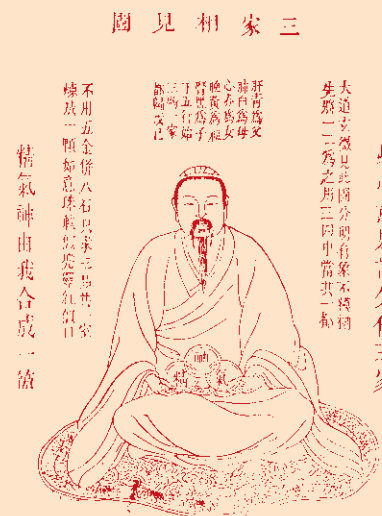 三家相見圖
大道玄微見此圖分明有象不糢糊
先將一二為之用三四中當共一爐
肝青為父
肺白為母
心赤為女
脾黃為祖
腎黑為子
子五行始
三物一家
都歸戊己
不用五金併八石只求三品共一室
煉成一顆如意珠軟似兜羅紅似日
精氣神由我合成一箇
神
精 氣